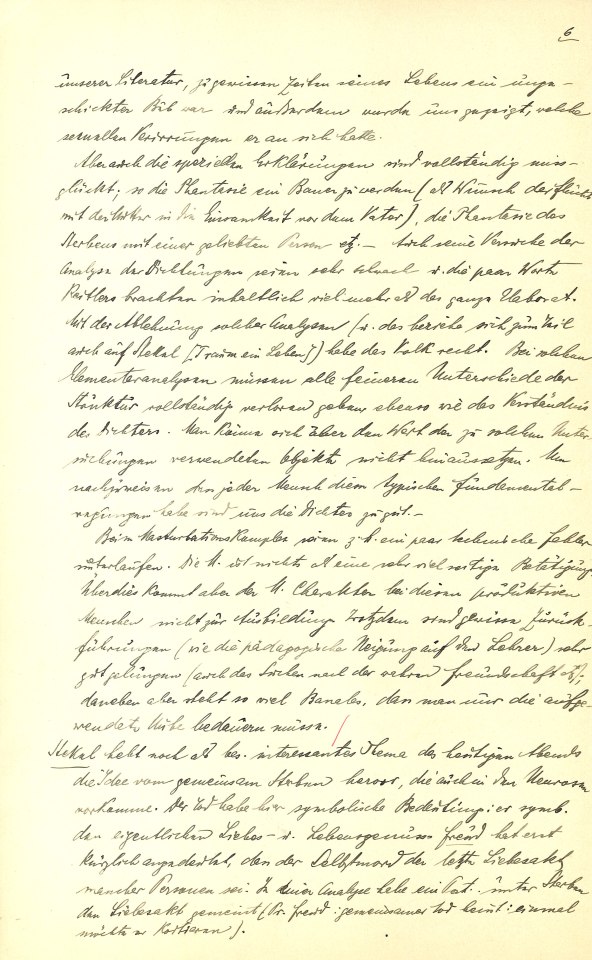 6
unserer Literatur, zu gewissen Zeiten seines Lebens ein unge-
schickter Bub war und außerdem wurde uns gezeigt, welche
sexuellen Verirrungen er an sich hatte.
Aber auch die speziellen Erklärungen sind vollständig miss-
glückt; so die Phantasie ein Bauer zu werden (als Wunsch der Flucht
mit der Mutter in die Einsamkeit vor dem Vater), die Phantasie des
Sterbens mit einer geliebten Person etz. — Auch seine Versuche der
Analyse der Dichtungen seien sehr schwach u. die paar Worte
brachten inhaltlich viel mehr als das ganze Elaborat.
Mit der Ablehnung solcher Analysen (u. das beziehe sich zum Teil
auch auf Stekel [Traum ein Leben]) habe das Volk recht. Bei solchen
Elementaranalysen müssen alle feineren Unterschiede der
Struktur vollständig verloren gehen ebenso wie das Verständnis
des Dichters. Man könne sich über den Wert der zu solchen Unter-
suchungen verwendeten Objekte nicht hinaussetzen. Um
nachzuweisen dass jeder Mensch diese typischen Fundamental-
regungen habe sind uns die Dichter zu gut. —
Beim Masturbationskomplex seien z. B. ein paar technische Fehler
unterlaufen. Die M. ist nichts als eine sehr vielseitige Betätigung.
Überdies kommt aber der M. Charakter bei diesen produktiven
Menschen nicht zur Ausbildung. Trotzdem sind gewisse Zurück-
führungen (wie die pädagogische Neigung auf den Lehrer) sehr
gut gelungen (auch das Suchen nach der wahren Freundschaft etz);
daneben aber steht so viel Banales, dass man nur die aufge-
wendete Mühe bedauern müsse.
Stekel hebt noch als bes. interessantes Thema des heutigen Abends
die Idee vom gemeinsam Sterben hervor, die auch in den Neurosen
vorkomme. Der Tod habe hier symbolische Bedeutung: er symb.
den eigentlichen Liebes- u. Lebensgenuss. Freud hat erst
kürzlich angedeutet, dass der Selbstmord der letzte Liebesakt
mancher Personen sei. In einer Analyse habe ein Pat. unter Sterben
den Liebesakt gemeint (Dr. Freud: gemeinsamer Tod heisst: einmal
möchte er).